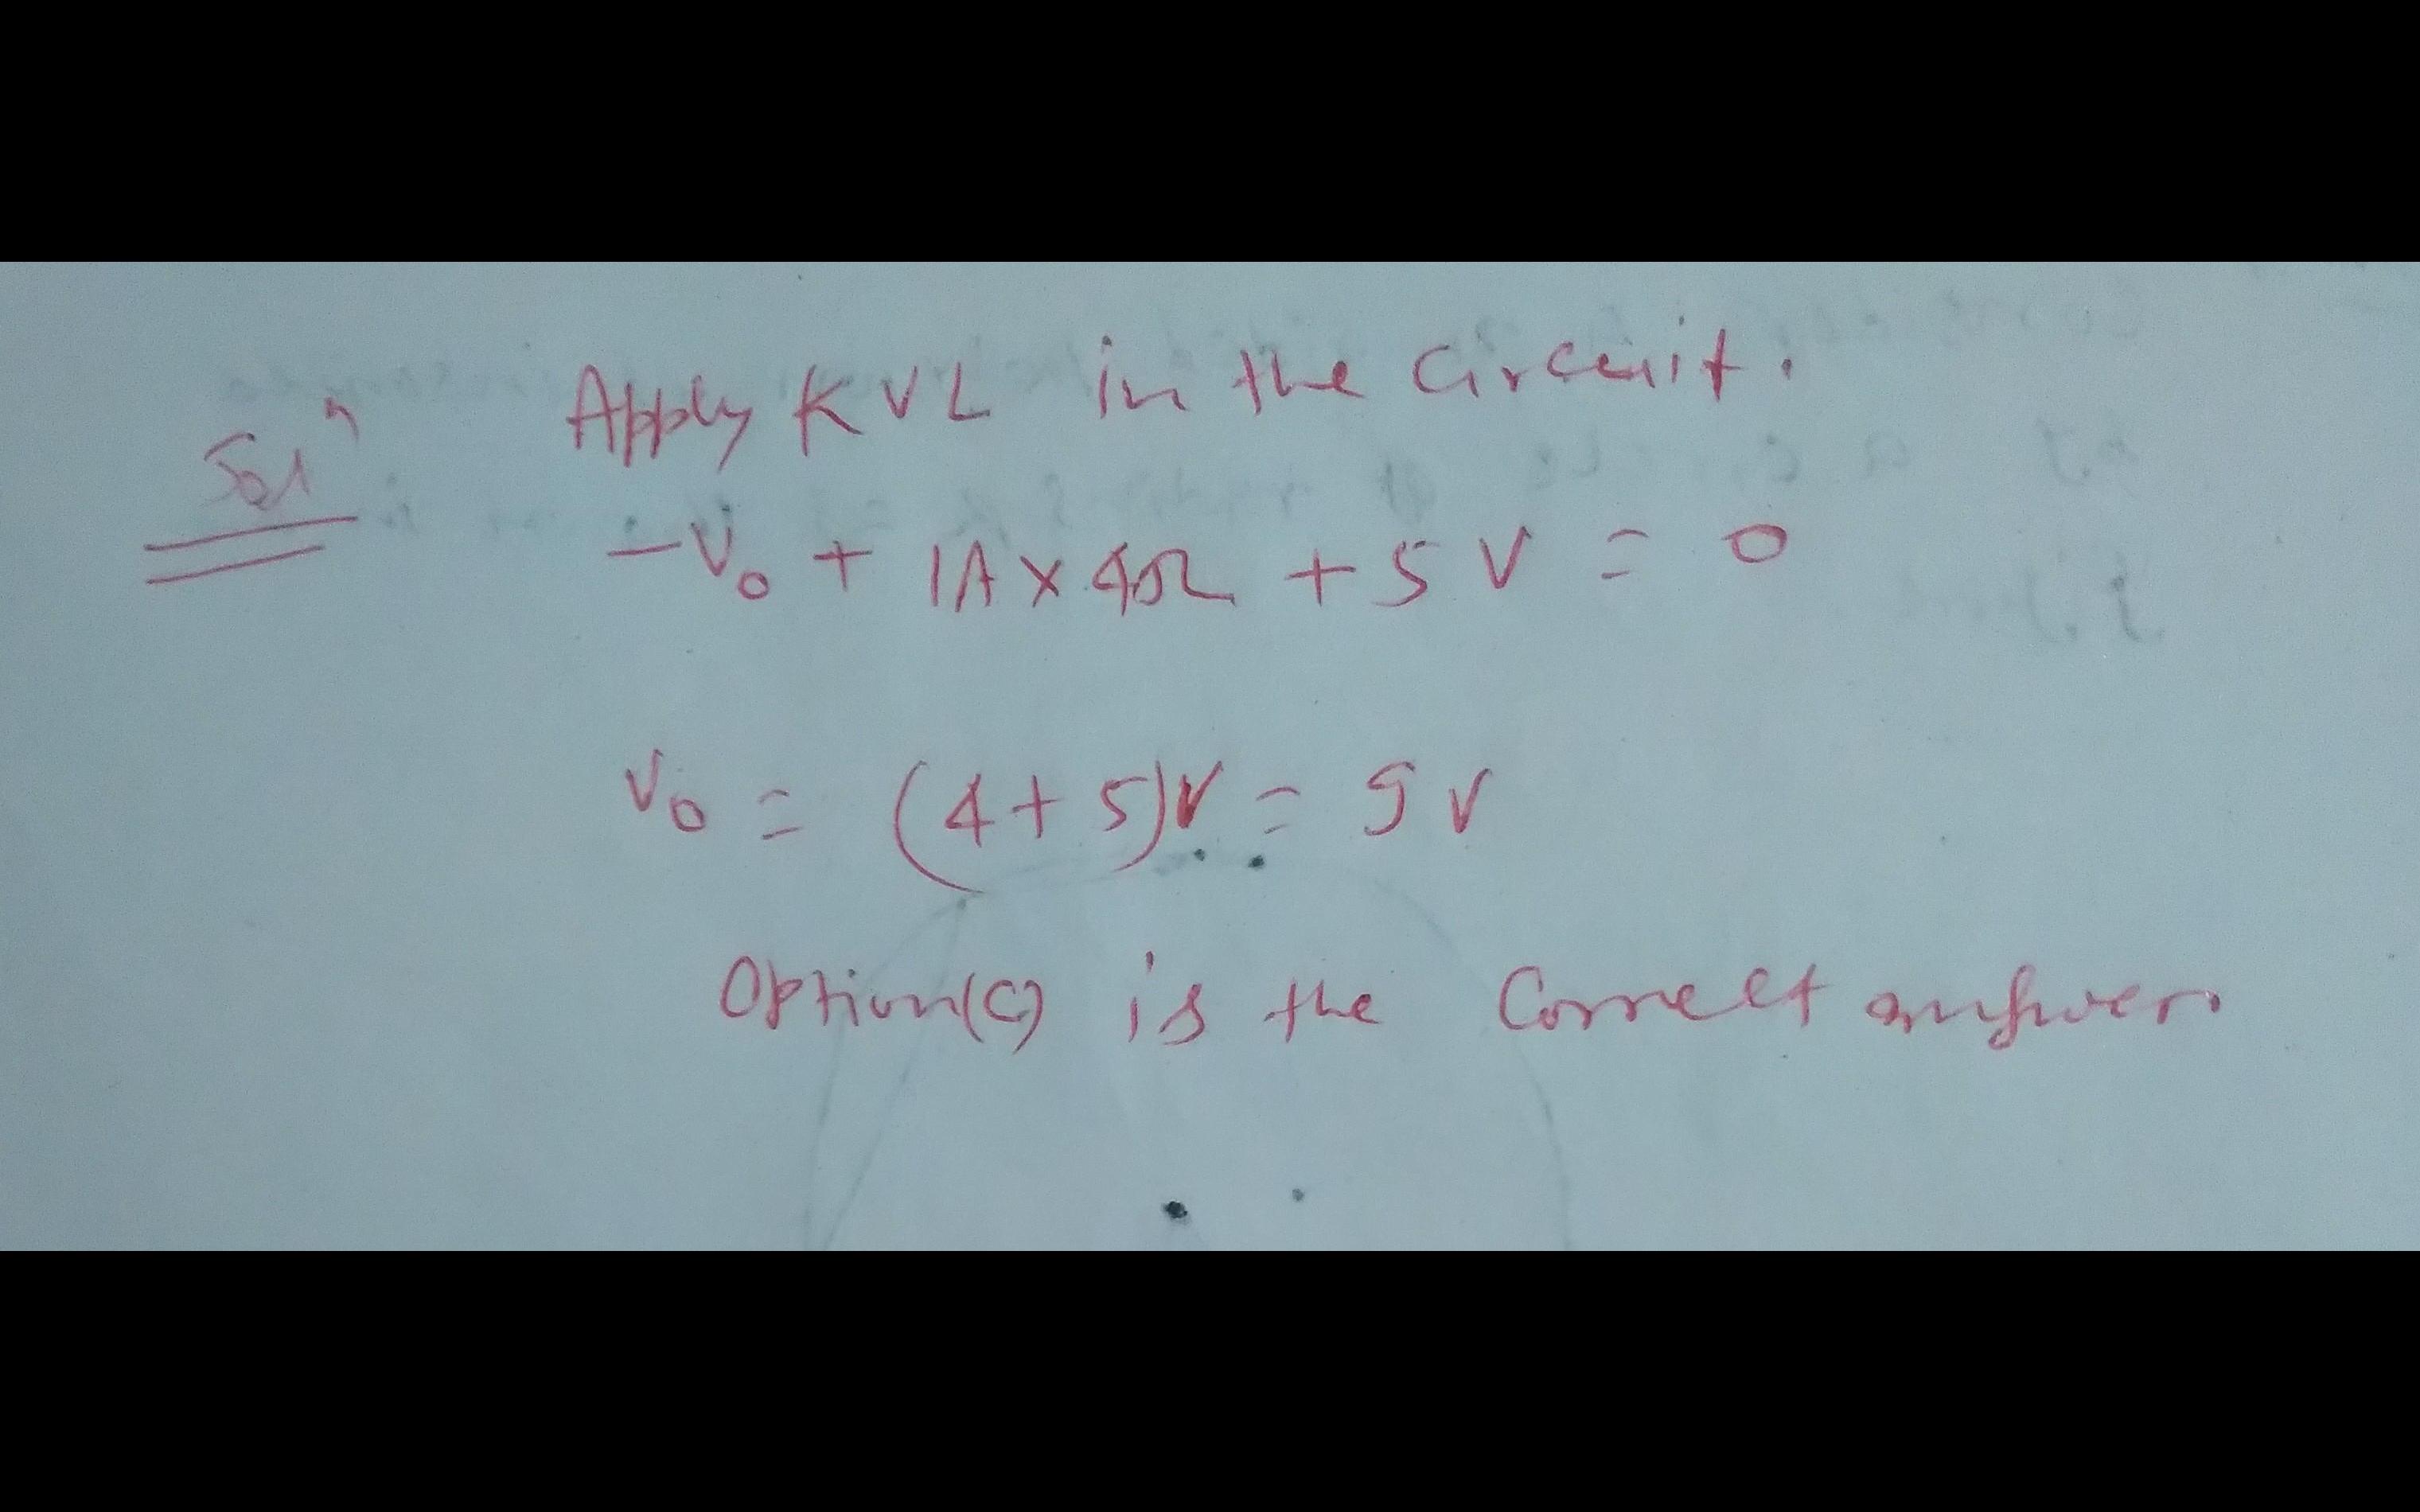 Solⁿ Apply KVL in the Circuit.
-V₀ + 1A × 4Ω + 5 V = 0
V₀ = (4 + 5)V = 9 V
Option(C) is the Correct answer.